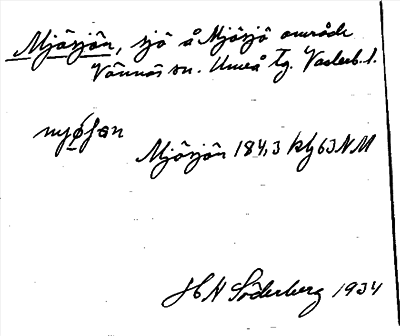 Mjösjön, sjö å Mjösjö område
Vännäs sn. Umeå tg. Västerb. l.
Mjösjön 1843 klg 63 NM
H N Söderberg 1934